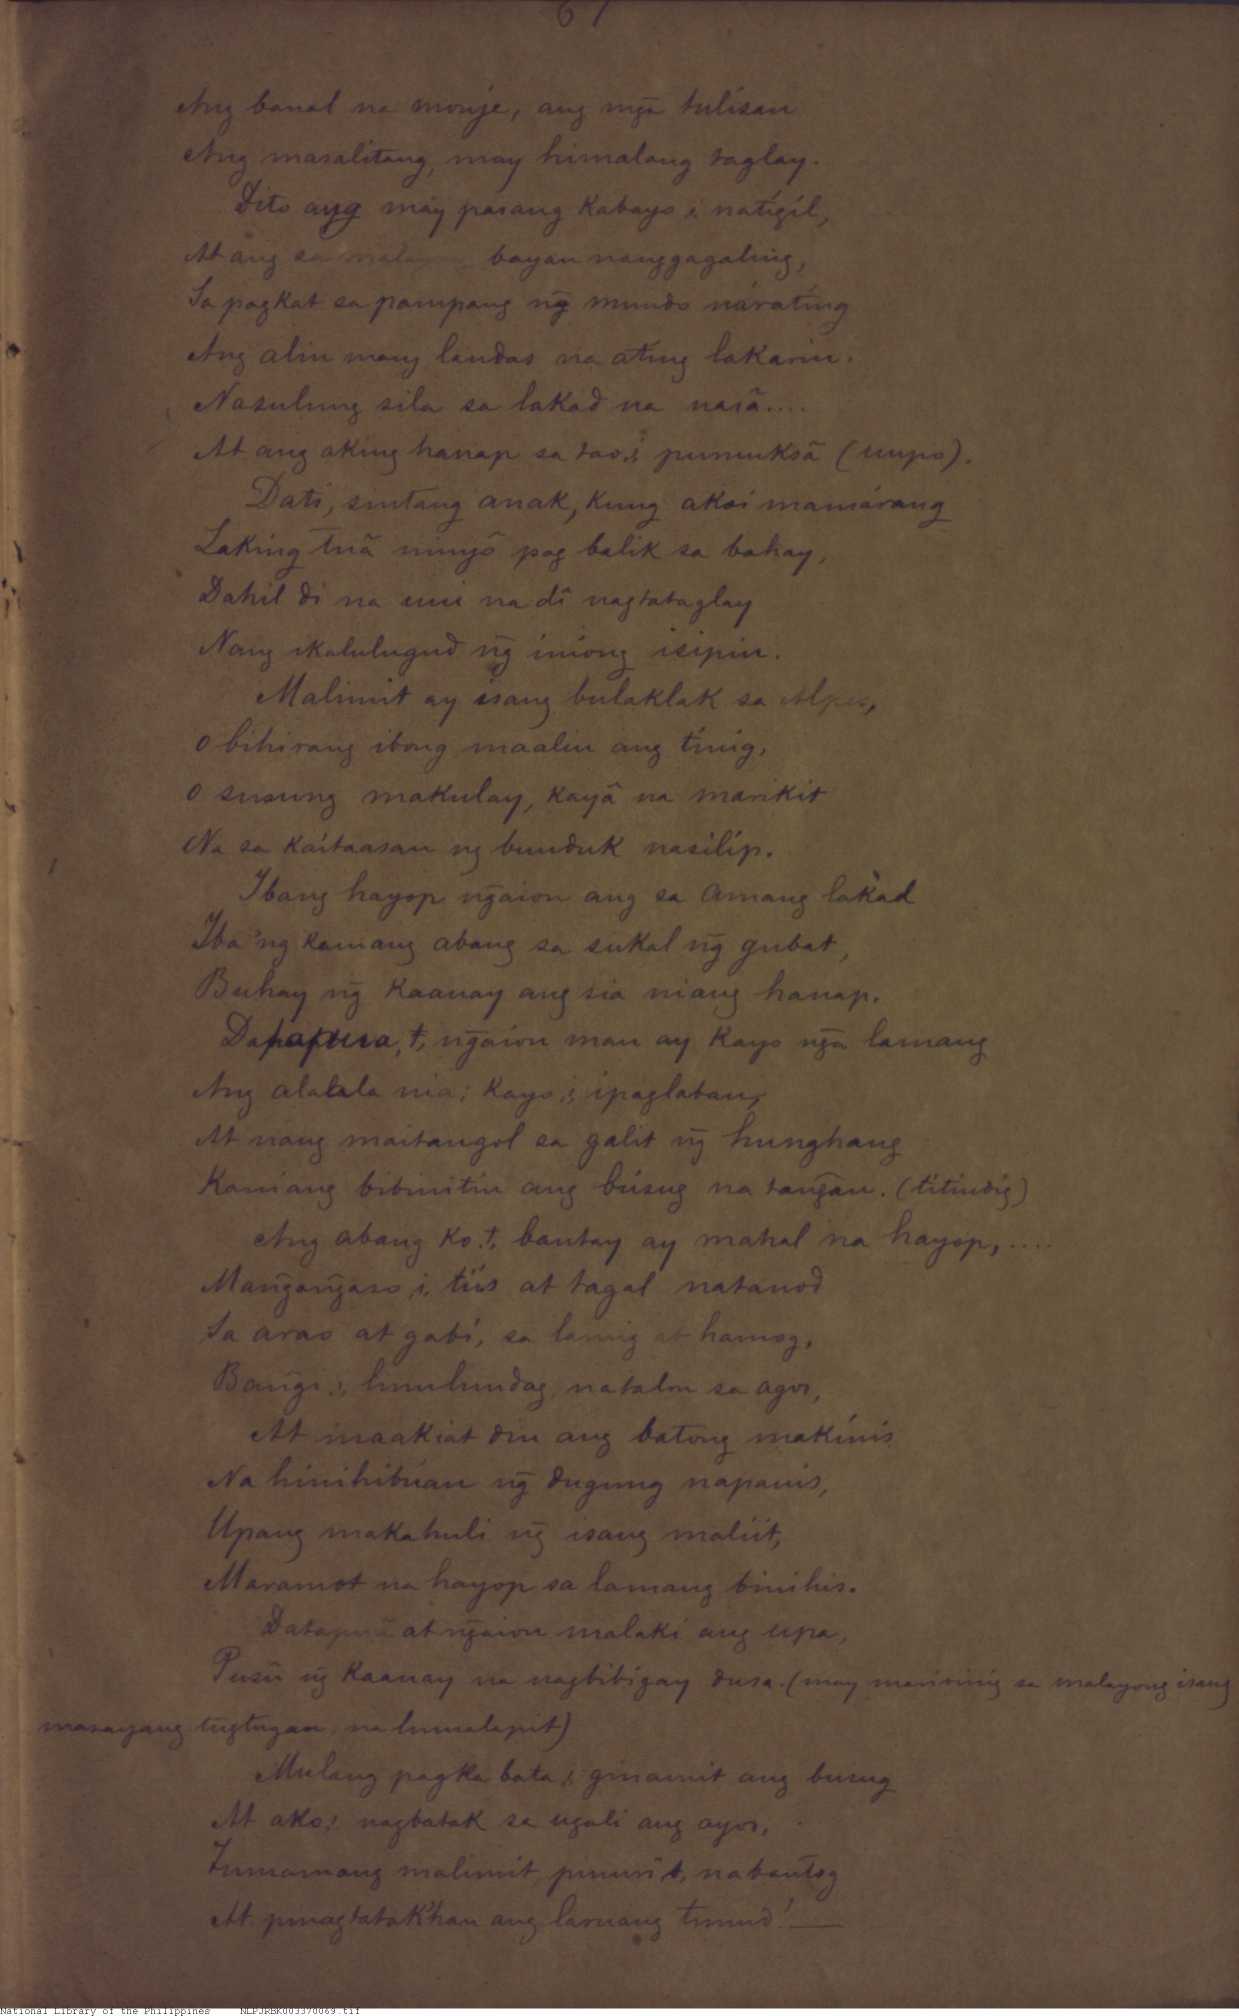 67
Ang banal na monje, ang mg̃a tulisan
Ang masalitang, may himalang taglay.
Dito ang may pasang kabayo,i, natigíl,
At ang sa malayong bayan nanggagaling,
Sa pagkat sa pampang ng̃ mundo nárating
Ang alin mang landas na ating lakarin.
Nasulung sila sa lakad na nasà....
At ang aking hanap sa tao,i, pumuksâ (uupo).
Dati, sintang anak, kung akoi mamárang
Laking tuâ ninyô pag balik sa bahay,
Dahil di na uui na dî nagtataglay
Nang ikalulugud ng̃ iniong isipin.
Malimit ay isang bulaklak sa Alpes,
O bihirang ibong maaliu ang tinig,
O susung makulay, kayâ na marikit
Na sa kaitaasan ng bunduk nasilíp.
Ibang hayop ng̃aion ang sa amang lakad
Iba'ng kamang abang sa sukal ng̃ gubat,
Buhay ng̃ kaauay ang sia niang hanap.
Datapuua,t, ng̃aion man ay kayo ng̃a lamang
Ang alalala nia; kayo,i, ipaglaban,
At nang maitangol sa galit ng̃ hunghang
Kaniang bibinitin ang búsug na tang̃an. (titindíg)
Ang abang ko,t, bantay ay mahal na hayop,....
Mang̃ang̃aso,i, tiis at tagal natanod
Sa arao at gabí, sa lamig at hamog,
Bang̃i,i, lunulundag, natalon sa agos,
At maakiat din ang batong makínis
Na hinihibúan ng̃ dugung napanis,
Upang makahuli ng̃ isang maliit,
Maramot na hayop sa lamang binihis.
Datapuâ at ng̃aion malaki ang upa,
Pusû ng̃ kaauay na nagbibigay dusa. (may maririnig sa malayong isang
masayang tugtugan, na lumalapit)
Mulang pagka bata,i, ginamit ang busug
At ako,i, nagbatak sa ugali ang ayos,
Tumamang malimit, puurí,t, nabantog
At pinagtatak'han ang laruang tunud! —
National Library of the Philippines NLPJRBK003370069.tif